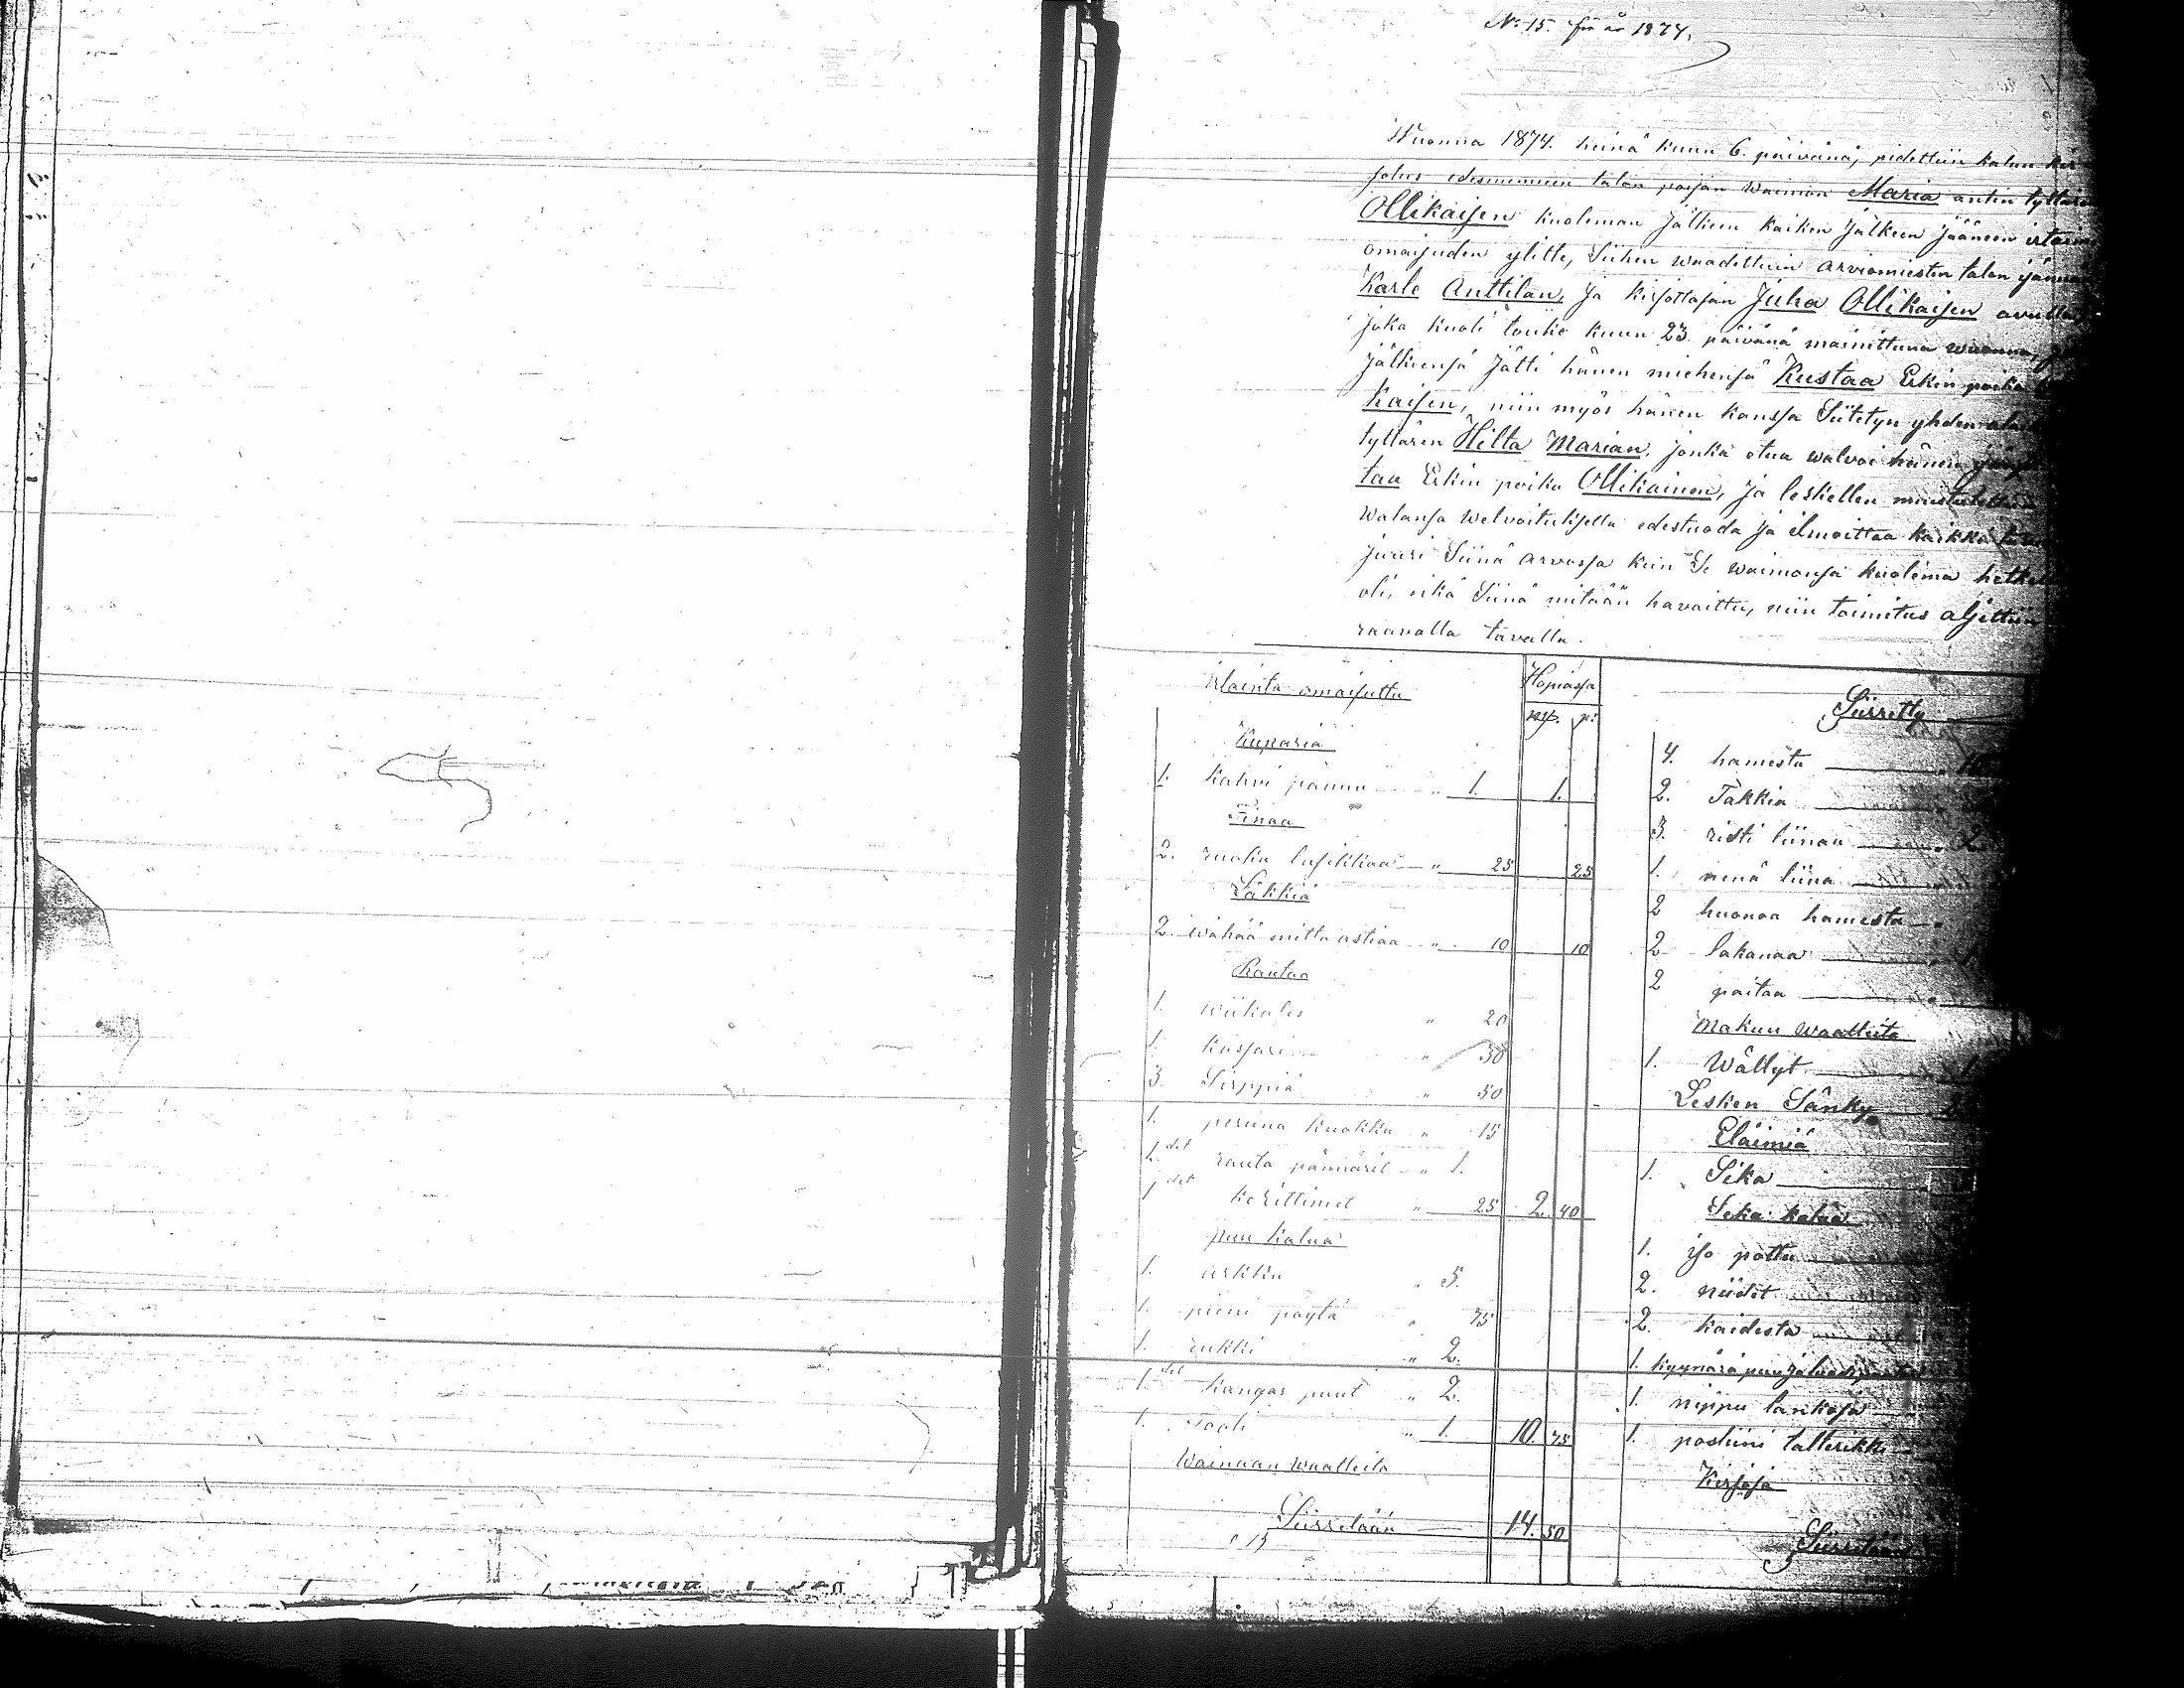 No 15. för år 1874.
Wuonna 1874. heinä kuun 6. päivänä, pidettiin kalun kir
joitus edesmenneen talon pojan waimon Maria antin tyttären
Ollikaisen kuoleman jälkeen kaiken jälkeen jääneen irtaim
omaisuden ylitte, Siihen waadittuin arviomiesten talon
Karle Anttilan, ja kirjottajan Juha Ollikaisen avulla,
joka kuoli touko kuun 23. päivänä mainittuna wuonna,
jälkeensä jätti hänen miehensä Kustaa Erkin poika
kaisen, niin myös hänen kanssa Siitetyn yhden
tyttären Hilta Marian, jonka etua walvoi hänen
taa Erkin poika Ollikainen, ja leskellen
walansa welvoituksella edestuoda ja ilmoittaa kaikki
juuri Siinä arvossa kuin Se waimonsa kuolema hetkel
oli, eikä Siinä mitään havaittu, niin toimitus aljettiin
raavalla tavalla.
Irtainta omaisutta Hopiassa
Kuparia
1. Kahvi pannu " 1. 1.
Tinaa
2. ruoka lusikkaa " 25 25
Läkkiä
2. wähää mitta astiaa " 10 10
Rautaa
1. wiikates " 20
1. kassari " 30
3. Sirppiä " 50
1. peruna kuokka " 15
1. det rauta pännärit " 1.
1 det kerittimet " 25 2. 40
puu kalua
1. arkku " 5.
1. pieni pöytä " 75
1. rukki " 2.
1. det kangas puut " 2.
1. Tooli " 1. 10. 75
Waimoan waatteita
Siirretään 14. 50
Siirretty
4. hamesta
2. Takkia
3. risti liinaa 2.
1. nenä liina
2 huonoa hamesta
2 lakanaa
2 paitaa
Makuu waatteita
1. Wällyt
Lesken Sänky
Eläimiä
1. Sika
Seka kalua
1. iso patta
2. niidet
2. kaidesta
1. kyynärä puu ja
1. nippu lankoja
1. posliini tallerikki
Kirjoja
Siirretään